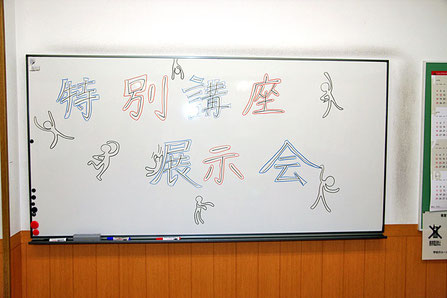 特別講座
展示会